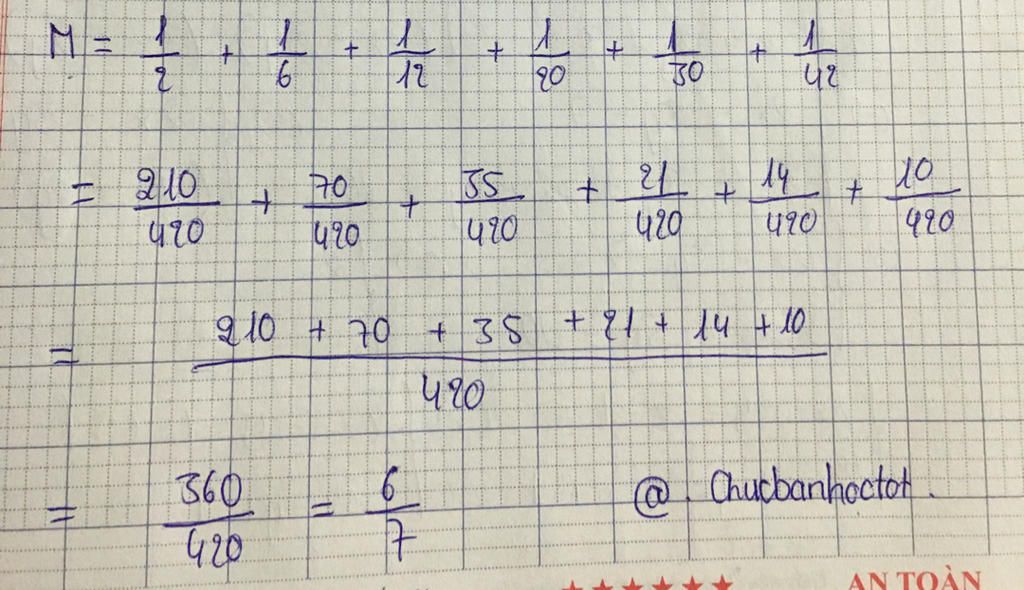 M = 1/2 + 1/6 + 1/12 + 1/20 + 1/30 + 1/42
= 210/420 + 70/420 + 35/420 + 21/420 + 14/420 + 10/420
= (210 + 70 + 35 + 21 + 14 + 10)/420
= 360/420 = 6/7 @. Chucbanhoctot.
★★★★★★ AN TOÀN